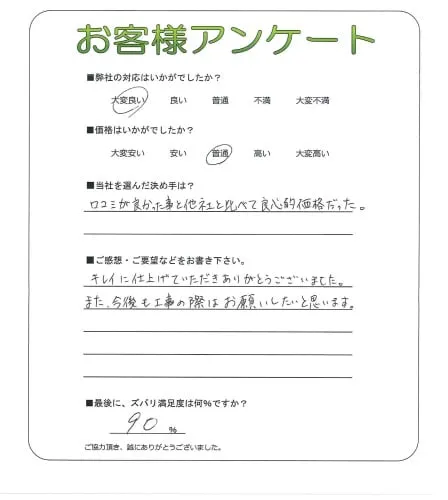 お客様アンケート
■弊社の対応はいかがでしたか？
大変良い 良い 普通 不満 大変不満
■価格はいかがでしたか？
大変安い 安い 普通 高い 大変高い
■当社を選んだ決め手は？
口コミが良かった事と他社と比べて良心的価格だった。
■ご感想・ご要望などをお書き下さい。
キレイに仕上げていただきありがとうございました。
また、今後も工事の際はお願いしたいと思います。
■最後に、ズバリ満足度は何％ですか？
90 ％
ご協力頂き、誠にありがとうございました。